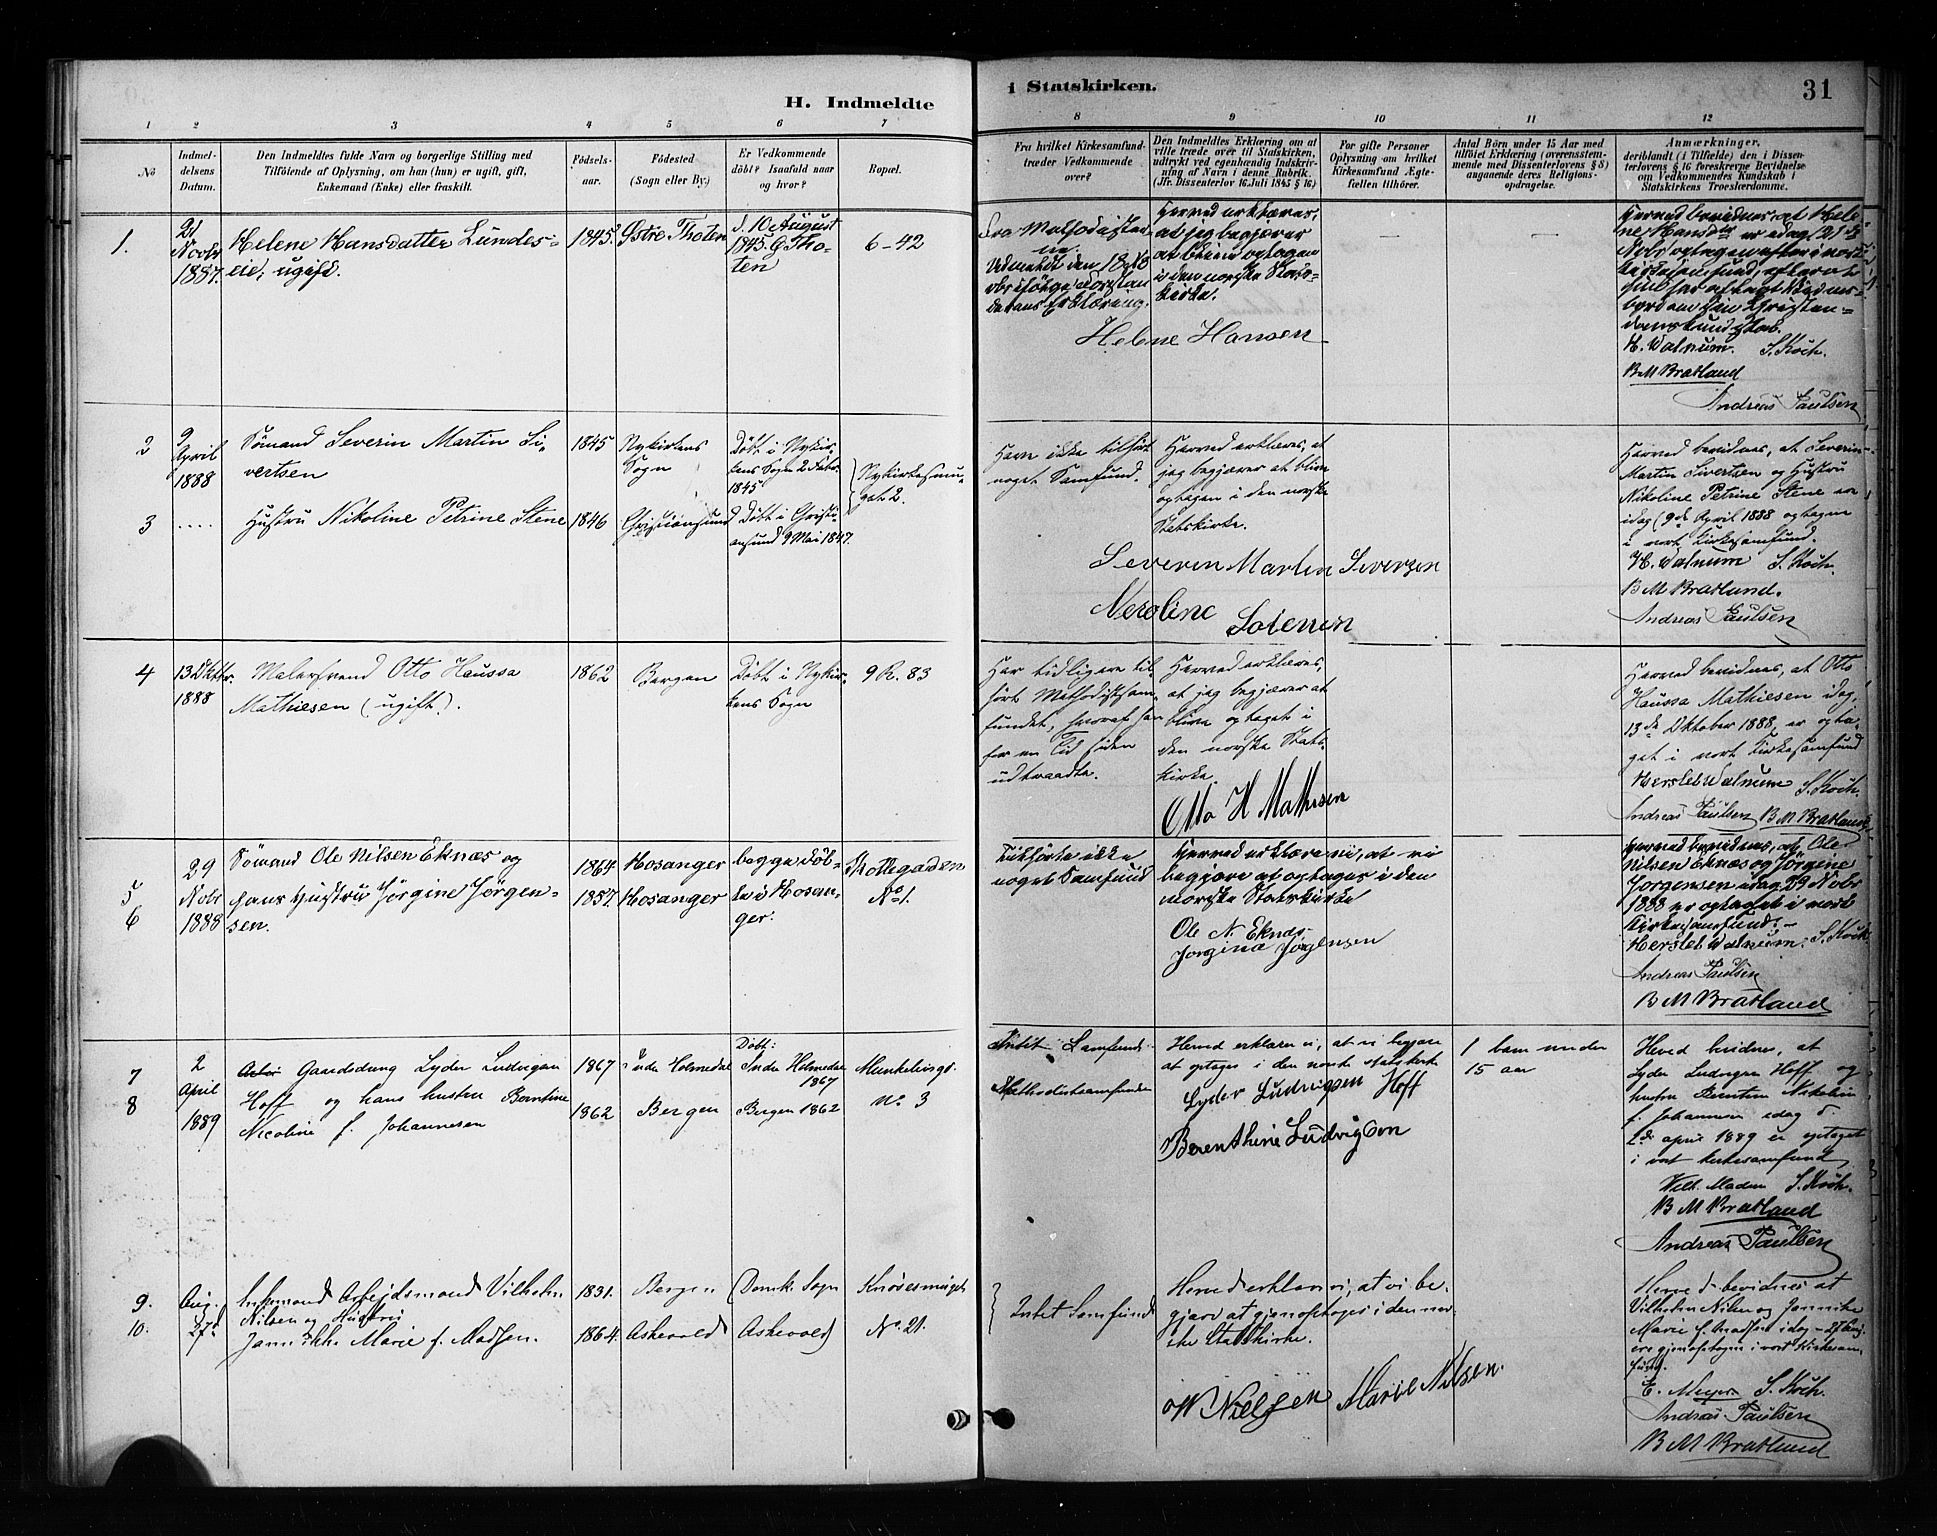 H. Indmeldte
i Statskirken.
31
1 2 3 4 5 6 7 8 9 10 11 12
No
Indmel-
delsens
Datum.
Den Indmeldtes fulde Navn og borgerlige Stilling med
Tilföiende af Oplysning, om han (hun) er ugift, gift,
Enkemand (Enke) eller fraskilt.
Födsels-
aar.
Födested
(Sogn eller By.)
Er Vedkommende
döbt? Isaafald naar
og hvor?
Bopæl.
Fra hvilket Kirkesamfund
træder Vedkommende
over?
Den Indmeldtes Erklæring om at
ville træde over til Statskirken,
udtrykt ved egenhændig Indskriv-
ning af Navn i denne Rubrik.
(Jfr. Dissenterlov 16. Juli 1845 § 16)
For gifte Personer
Oplysning om hvilket
Kirkesamfund Ægte-
fællen tilhörer.
Antal Börn under 15 Aar med
tilföiet Erklæring (overensstem-
mende med Dissenterlovens § 8)
angaaende deres Religions-
opdragelse.
Anmærkninger,
deriblandt (i Tilfælde) den i Dissen-
terlovens § 16 foreskrevne Bevidnelse
om Vedkommendes Kundskab i
Statskirkens Troeslærdomme.
1.
21
Novbr
1887.
Helene Hansdatter Lundes-
eie, ugift.
1845.
Østre Thoten
d. 10 August
1845. Ø. Tho-
ten
6-42
Fra Methodister-
ne.
Udmeldt den 18 No
vbr ifølge Forstan
derens Erklæring.
Herved erklæres,
at jeg begjærer
at blive optagen
i den norske Stats-
kirke.
Helene Hansen
Herved bevidnes, at Hele
ne Hansdtr er idag (21de
Novbr) optagen i vort
Kirkesamfund, efterat
hun har aflagt Vidnes-
byrd om sin Christen-
domskundskab.
H. Walnum. S. Koch.
B M Bratland
Andreas Paulsen
2
9
April
1888
Sømand Severin Martin Si-
vertsen
1845
Nykirkens
Sogn
Døbt i Nykir-
kens Sogn 2 Febr.
1845
Nykirkesmu-
get 2.
3
....
Hustru Nikoline Petrine Stene
1846
Christiansund
Døbt i Christi-
ansund 9 Mai 1847.
Have ikke tilhørt
noget Samfund.
Herved erklæres, at
jeg begjærer at blive
optagen i den norske
Statskirke.
Severin Martin Severzen
Herved bevidnes, at Severin
Martin Sivertsen og Hustru
Nikoline Petrine Stene er
idag (9de April 1888 optagne
i vort Kirkesamfund.
H. Walnum S. Koch.
B M Bratlund.
Andreas Paulsen
4
13 Oktbr.
1888
Malersvend Otto Haussa
Mathiesen (ugift).
1862
Bergen
Døbt i Nykir-
kens Sogn
9 R. 83
Har tidligere til-
hørt Methodistsam-
fundet, hvoraf han
for en Tid siden
udtraadte.
Herved erklæres,
at jeg begjærer at
blive optaget i
den norske Stats-
kirke.
Otto H Mathisen
Herved bevidnes, at Otto
Haussa Mathiesen idag,
13de Oktober 1888, er opta-
get i vort Kirkesamfund
Hersleb Walnum S. Koch.
Andreas Paulsen B M Bratland
5
6
29
Novbr
1888
Sømand Ole Nilsen Eknæs og
hans Hustru Jørgine Jørgen-
sen.
1864
1857.
Hosanger
Hosanger
begge døb-
te i Hosan-
ger.
Skottegaden
No 1.
Tilhørte ikke
noget Samfund
Herved erklære vi, at vi
begjære at optages i den
norske Statskirke
Ole N. Eknæs
Jørgina Jørgensen
Herved bevidnes, at Ole
Nilsen Eknæs og Jørgine
Jørgensen idag 29 Novbr
1888 er optaget i vort
Kirkesamfund.-
Hersleb Walnum. S. Koch
Andreas Paulsen
B M Bratland
7
8
2
April
1889
Gaardsdreng Lyder Ludvigsen
Hoff og hans hustru Berntine
Nicoline f. Johannesen
1867
1862
Indre Holmedal
Bergen
Døbt:
Indre Holmedal
1867
Bergen 1862
Munkelivsgd.
No 3
Intet Samfund.
Methodistsamfundet
Herved erklæres vi, at vi begjære
at optages i den norske statskirke
Lyder Ludvigsen Hoff
Berenthine Ludvigson
1 barn under
15 aar
Herved bevidnes, at
Lyder Ludvigsen Hoff og
hustru Berntine Nikoline
f. Johannesen idag d.
2de april 1889 er optaget
i vort kirkesamfund
S. Koch.
B M Bratland
Andreas Paulsen
9.
10.
Aug.
27de
Arbejdsmand Vilhelm
Nilsen og Hustru
Jannikke Marie f. Madsen.
1831.
1864.
Bergen
Askevold
(Domk. Sogn
Askevold)
Knøsesmuget
No. 21.
Intet Samfund
Herved erklære vi, at vi be-
gjære at gjenoptages i den nor-
ske Statskirke.
W Nielsen Marie Nilsen.
Herved bevidnes at
Vilhelm Nilsen og Jannike
Marie f. Madsen idag - 27 Aug.
ere gjenoptagne i vort Kirkesam-
fund.
E. Meyer S. Koch.
Andreas Paulsen
B M Bratlund